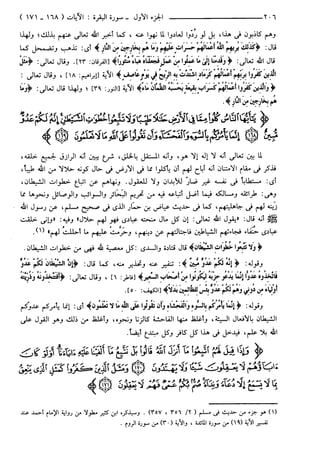 ٢٠٦ الجزء الأول ـ سورة البقرة : الآيات ( ١٦٨ ـ ١٧١ )
وهم كاذبون فى هذا، بل لو ردُّوا لعادوا لما نهوا عنه ، كما أخبر الله تعالى عنهم بذلك؛ ولهذا
قال: ﴿كَذَٰلِكَ يُرِيهِمُ اللَّهُ أَعْمَالَهُمْ حَسَرَاتٍ عَلَيْهِمْ وَمَا هُم بِخَارِجِينَ مِنَ النَّارِ﴾ أى: تذهب وتضمحل كما
قال الله تعالى: ﴿وَقَدِمْنَا إِلَىٰ مَا عَمِلُوا مِنْ عَمَلٍ فَجَعَلْنَاهُ هَبَاءً مَّنثُورًا﴾ [الفرقان: ٢٣]. وقال تعالى: ﴿مَّثَلُ
الَّذِينَ كَفَرُوا بِرَبِّهِمْ أَعْمَالُهُمْ كَرَمَادٍ اشْتَدَّتْ بِهِ الرِّيحُ فِي يَوْمٍ عَاصِفٍ﴾ الآية [إبراهيم: ١٨] ، وقال تعالى :
﴿وَالَّذِينَ كَفَرُوا أَعْمَالُهُمْ كَسَرَابٍ بِقِيعَةٍ يَحْسَبُهُ الظَّمْآنُ مَاءً﴾ الآية [النور: ٣٩] ؛ ولهذا قال تعالى: ﴿وَمَا
هُم بِخَارِجِينَ مِنَ النَّارِ﴾ .
﴿يَا أَيُّهَا النَّاسُ كُلُوا مِمَّا فِي الْأَرْضِ حَلَالًا طَيِّبًا وَلَا تَتَّبِعُوا خُطُوَاتِ الشَّيْطَانِ إِنَّهُ لَكُمْ عَدُوٌّ
مُّبِينٌ (١٦٨) إِنَّمَا يَأْمُرُكُم بِالسُّوءِ وَالْفَحْشَاءِ وَأَن تَقُولُوا عَلَى اللَّهِ مَا لَا تَعْلَمُونَ (١٦٩)﴾
لما بين تعالى أنه لا إله إلا هو، وأنه المستقل بالخلق، شرع يبين أنه الرازق لجميع خلقه،
فذكر فى مقام الامتنان أنه أباح لهم أن يأكلوا مما فى الأرض فى حال كونه حلالا من الله طيباً،
أى: مستطاباً فى نفسه غير ضارّ للأبدان ولا للعقول. ونهاهم عن اتباع خطوات الشيطان،
وهى: طرائقه ومسالكه فيما أضل أتباعه فيه من تحريم البحائر والسوائب والوصائل ونحوها مما
زينه لهم فى جاهليتهم، كما فى حديث عياض بن حمار الذى فى صحيح مسلم، عن رسول الله
ﷺ أنه قال: «يقول الله تعالى: إن كل مال منحته عبادى فهو لهم حلال» وفيه: «وإنى خلقت
عبادى حنفاء، فجاءتهم الشياطين فاجتالتهم عن دينهم، وحرّمت عليهم ما أحللت لهم» (١).
﴿وَلَا تَتَّبِعُوا خُطُوَاتِ الشَّيْطَانِ﴾ قال قتادة والسدى: كل معصية لله فهى من خطوات الشيطان.
وقوله: ﴿إِنَّهُ لَكُمْ عَدُوٌّ مُّبِينٌ﴾: تنفير عنه وتحذير منه، كما قال: ﴿إِنَّ الشَّيْطَانَ لَكُمْ عَدُوٌّ
فَاتَّخِذُوهُ عَدُوًّا إِنَّمَا يَدْعُو حِزْبَهُ لِيَكُونُوا مِنْ أَصْحَابِ السَّعِيرِ﴾ [فاطر: ٦] ، وقال تعالى: ﴿أَفَتَتَّخِذُونَهُ وَذُرِّيَّتَهُ
أَوْلِيَاءَ مِن دُونِي وَهُمْ لَكُمْ عَدُوٌّ بِئْسَ لِلظَّالِمِينَ بَدَلًا﴾ [الكهف: ٥٠].
وقوله: ﴿إِنَّمَا يَأْمُرُكُم بِالسُّوءِ وَالْفَحْشَاءِ وَأَن تَقُولُوا عَلَى اللَّهِ مَا لَا تَعْلَمُونَ﴾ أى: إنما يأمركم عدوكم
الشيطان بالأفعال السيئة، وأغلظ منها الفاحشة كالزنا ونحوه، وأغلظ من ذلك وهو القول على
الله بلا علم، فيدخل فى هذا كل كافر وكل مبتدع أيضاً.
﴿وَإِذَا قِيلَ لَهُمُ اتَّبِعُوا مَا أَنزَلَ اللَّهُ قَالُوا بَلْ نَتَّبِعُ مَا أَلْفَيْنَا عَلَيْهِ آبَاءَنَا أَوَلَوْ كَانَ آبَاؤُهُمْ
لَا يَعْقِلُونَ شَيْئًا وَلَا يَهْتَدُونَ (١٧٠) وَمَثَلُ الَّذِينَ كَفَرُوا كَمَثَلِ الَّذِي يَنْعِقُ
بِمَا لَا يَسْمَعُ إِلَّا دُعَاءً وَنِدَاءً صُمٌّ بُكْمٌ عُمْيٌ فَهُمْ لَا يَعْقِلُونَ (١٧١)﴾
(١) هو جزء من حديث فى مسلم (٢/ ٣٥٦ ، ٣٥٧) . وسيذكره ابن كثير مطولا من رواية الإمام أحمد عند
تفسير الآية (١٩) من سورة المائدة ، والآية (٣٠) من سورة الروم .